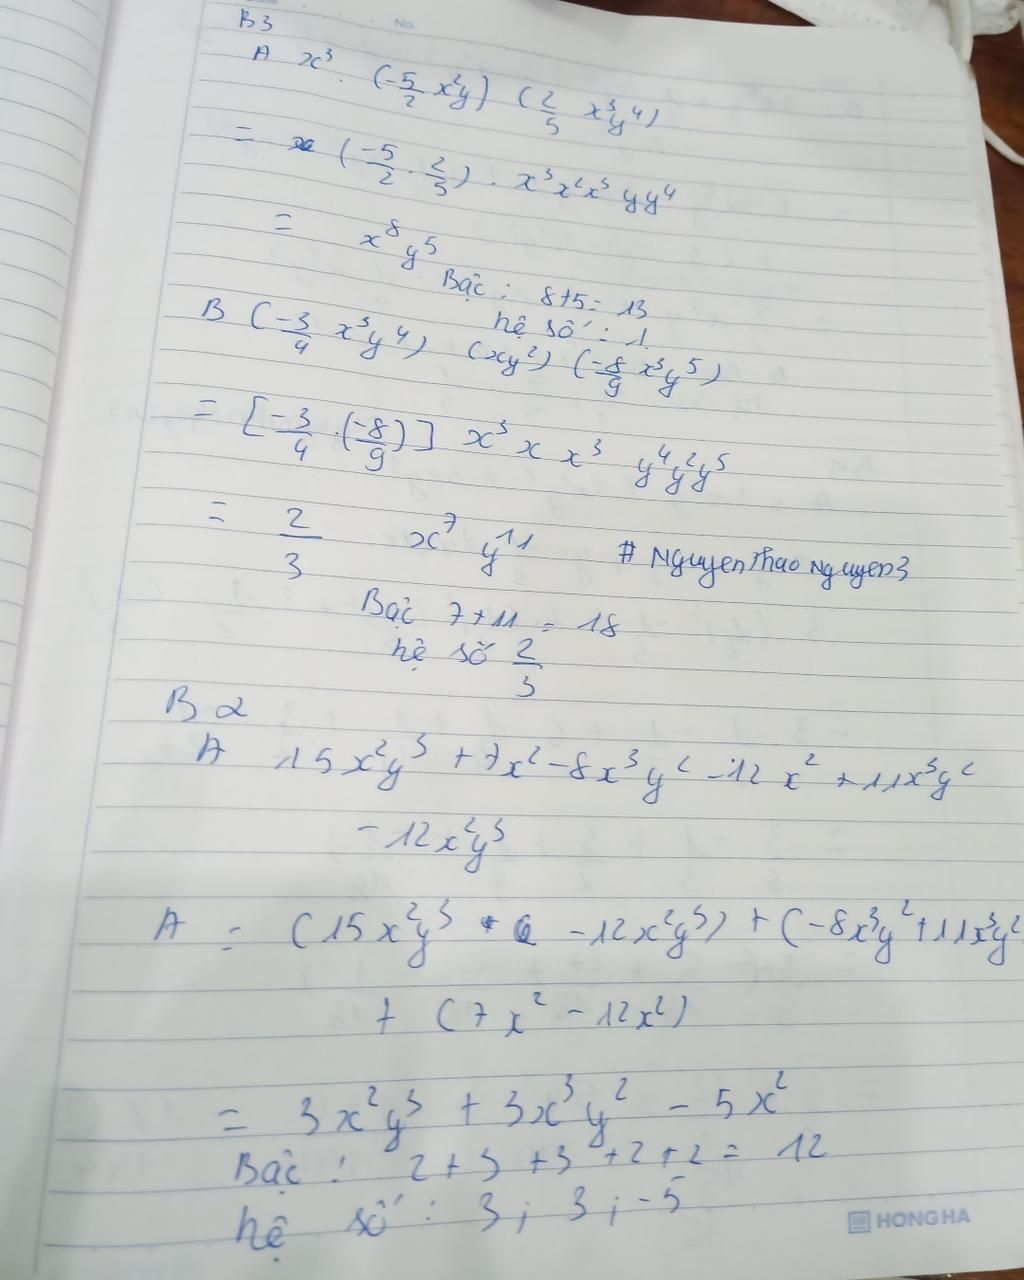 No.
B3
A x³ . (-5/2 x²y) (2/5 x³y⁴)
= (-5/2 . 2/5) . x³x²x³ yy⁴
= x⁸y⁵
Bậc : 8+5= 13
hệ số : 1
B (-3/4 x³y⁴) (xy²) (-8/9 x³y⁵)
= [-3/4 . (-8/9)] x³ x x³ y⁴y²y⁵
= 2/3 x⁷ y¹¹ # NguyenThaoNguyen3
Bậc 7+11 = 18
hệ số 2/3
B2
A 15x²y³ + 7x² - 8x³y² - 12x² + 11x³y²
- 12x²y³
A = (15x²y³ - 12x²y³) + (-8x³y² + 11x³y²
+ (7x² - 12x²)
= 3x²y³ + 3x³y² - 5x²
Bậc : 2+3 +3 +2+2 = 12
hệ số : 3 ; 3 ; -5
HONG HA